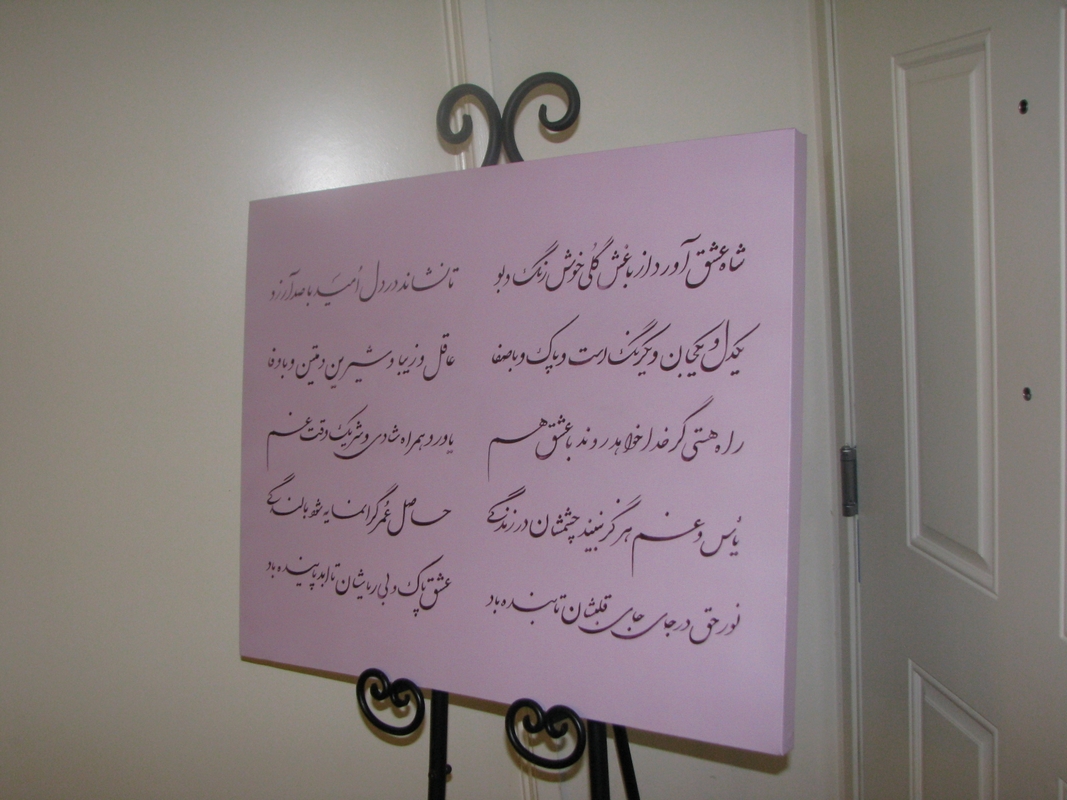 شاه عشق آورد از باغش گلی خوش رنگ و بو
تا نشاند در دل اُمید با صد آرزو
یکدل و یکجان و یکرنگ است و پاک و باصفا
عاقل و زیبا و شیرین و متین و باوفا
راه هستی گر خدا خواهد روند با عشق هم
یاور و همراه شادی و شریک وقت غم
یأس و غم هرگز نبیند چشمشان در زندگی
حاصل عُمر گرانمایه شود بالندگی
نور حق در جای جای قلبشان تابنده باد
عشق پاک و بی ریایشان تا ابد پاینده باد